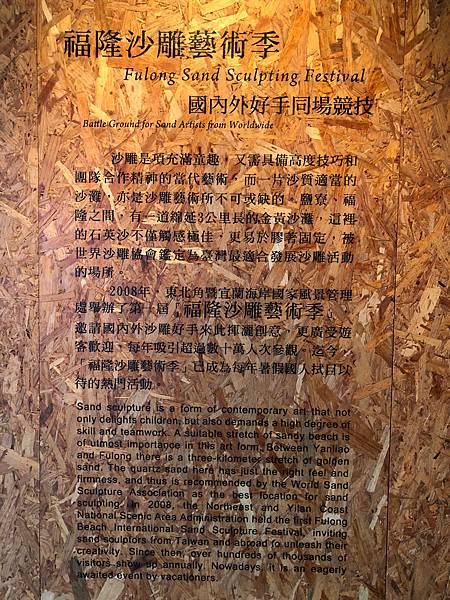 福隆沙雕藝術季
Fulong Sand Sculpting Festival
國內外好手同場競技
Battle Ground for Sand Artists from Worldwide
沙雕是項充滿童趣，又需具備高度技巧和
團隊合作精神的當代藝術。而一片沙質適當的
沙灘，亦是沙雕藝術所不可或缺的。鹽寮、福
隆之間，有一道綿延3公里長的金黃沙灘，這裡
的石英沙不僅觸感極佳，更易於膠著固定，被
世界沙雕協會鑑定為臺灣最適合發展沙雕活動
的場所。
2008年，東北角暨宜蘭海岸國家風景管理
處舉辦了第一屆「福隆沙雕藝術季」，
邀請國內外沙雕好手來此揮灑創意，更廣受遊
客歡迎，每年吸引超過數十萬人次參觀。迄今，
「福隆沙雕藝術季」已成為每年暑假國人拭目以
待的熱門活動。
Sand sculpture is a form of contemporary art that not
only delights children, but also demands a high degree of
skill and teamwork. A suitable stretch of sandy beach is
of utmost importance in this art form. Between Yanliao
and Fulong there is a three-kilometer stretch of golden
sand. The quartz sand here has just the right feel and
firmness, and thus is recommended by the World Sand
Sculpture Association as the best location for sand
sculpting. In 2008, the Northeast and Yilan Coast
National Scenic Area Administration held the first Fulong
Beach International Sand Sculpture Festival, inviting
sand sculptors from Taiwan and abroad to unleash their
creativity. Since then, over hundreds of thousands of
visitors show up annually. Nowadays, it is an eagerly
awaited event by vacationers.